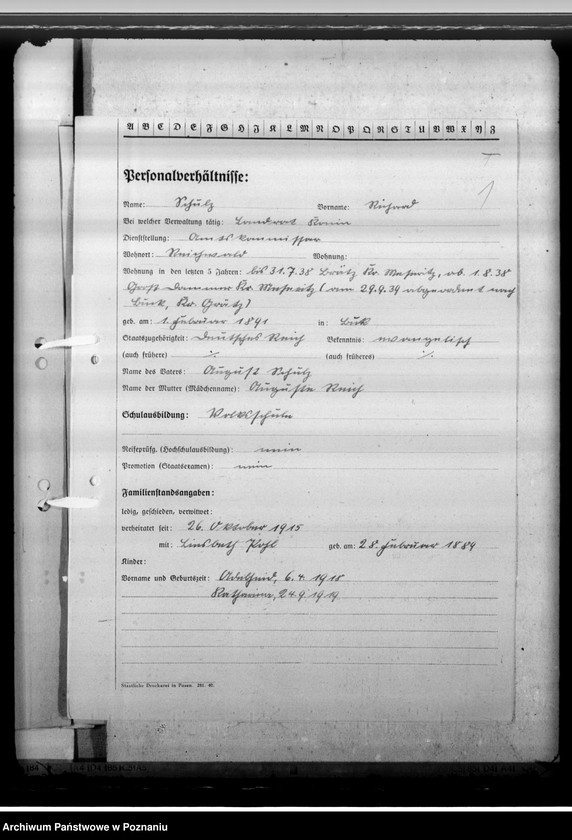 A B C D E F G H J K L M N O P Q R S T U V W X Y Z
1
Personalverhältnisse:
Name: Schulz Vorname: Richard
Bei welcher Verwaltung tätig: Landrat Konin
Dienststellung: Amtskommissar
Wohnort: Reichwald Wohnung:
Wohnung in den letzten 5 Jahren: bis 31.7.38 Brätz Kr. Meseritz, ab 1.8.38
Groß Dammer Kr. Meseritz (am 29.9.39 abgeordnet nach
Buk, Kr. Grätz)
geb. am: 1. Februar 1891 in: Buk
Staatszugehörigkeit: Deutsches Reich Bekenntnis: evangelisch
(auch frühere) ./. (auch früheres) ./.
Name des Vaters: August Schulz
Name der Mutter (Mädchenname): Auguste Reich
Schulausbildung: Volksschule
Reifeprüfg. (Hochschulausbildung): nein
Promotion (Staatsexamen): nein
Familienstandsangaben:
ledig, geschieden, verwitwet:
verheiratet seit: 26. Oktober 1915
mit: Liesbeth Pohl geb. am: 28. Februar 1889
Kinder:
Vorname und Geburtszeit: Adelheid, 6.4.1918
Katharina, 24.9.1919
Staatliche Druckerei in Posen. 291. 40.
Archiwum Państwowe w Poznaniu